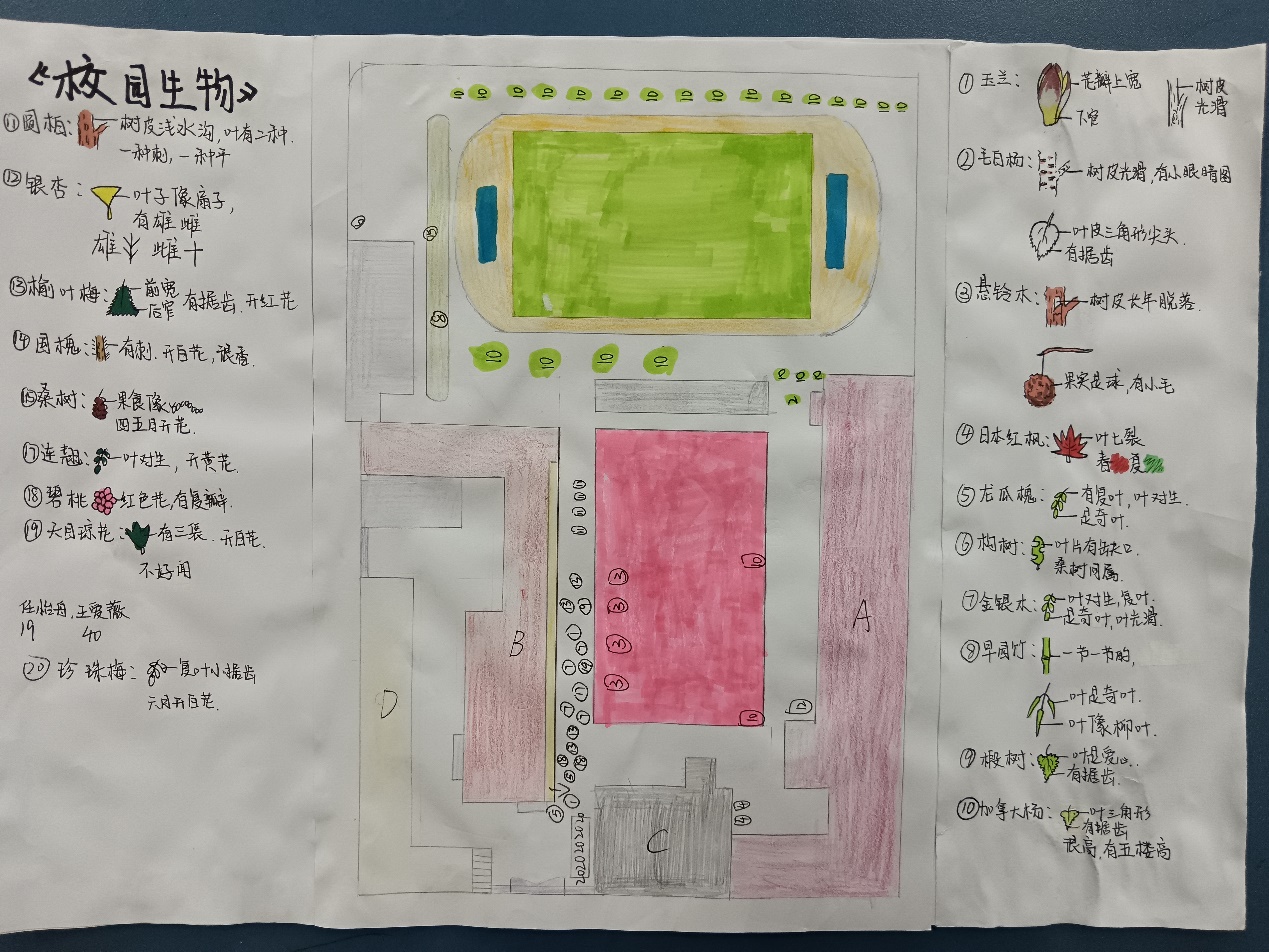 《校园生物》
⑪圆柏：树皮浅水沟，叶有二种.
一种刺，一种平
⑫银杏：叶子像扇子，
有雄雌
雄 雌
⑬榆叶梅：前宽
后窄
有据齿.开红花
⑭国槐：有刺.开白花，很香.
⑮桑树：果食像
四五月开花.
⑰连翘：叶对生，开黄花.
⑱碧桃 红色花，有复瓣.
⑲天目琼花：有三裂.开白花.
不好闻
19 40
⑳珍珠梅：复叶小据齿
六月开白花.
10 10 10 10 10 10 10 10 10 10 10 10 10 10 10 10
⑱
10 10 10 10
3
3
3
3
10
10
A
B
C
D
12
⑤
20202020
①玉兰：花瓣上宽
下窄
树皮
光滑
②毛白杨：树皮光滑，有小眼暗图
叶皮三角形尖头.
有据齿
③悬铃木：树皮长年脱落.
果实是球，有小毛
④日本红枫：叶七裂
春 夏
⑤龙瓜槐：有复叶，叶对生.
是奇叶.
⑥构树：叶片有缺口.
桑树同属.
⑦金银木：叶对生，复叶.
是奇叶，叶光滑.
⑧早园竹：一节一节的，
叶是奇叶.
叶像柳叶.
⑨椴树：叶是爱心.
有据齿.
⑩加拿大杨：叶三角形
有据齿
很高，有五楼高